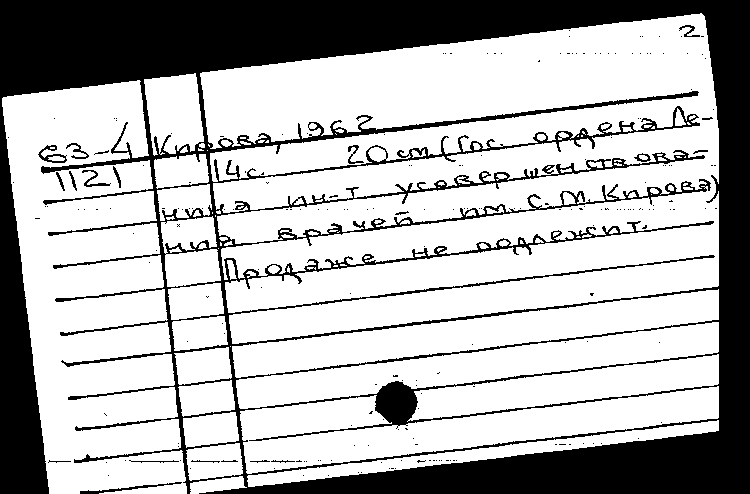 2
63-4 Кирова, 1962
1121 14с. 20см (Гос. ордена Ле-
нина ин-т усовершенствова-
ния врачей им. С. М. Кирова)
Продаже не подлежит.